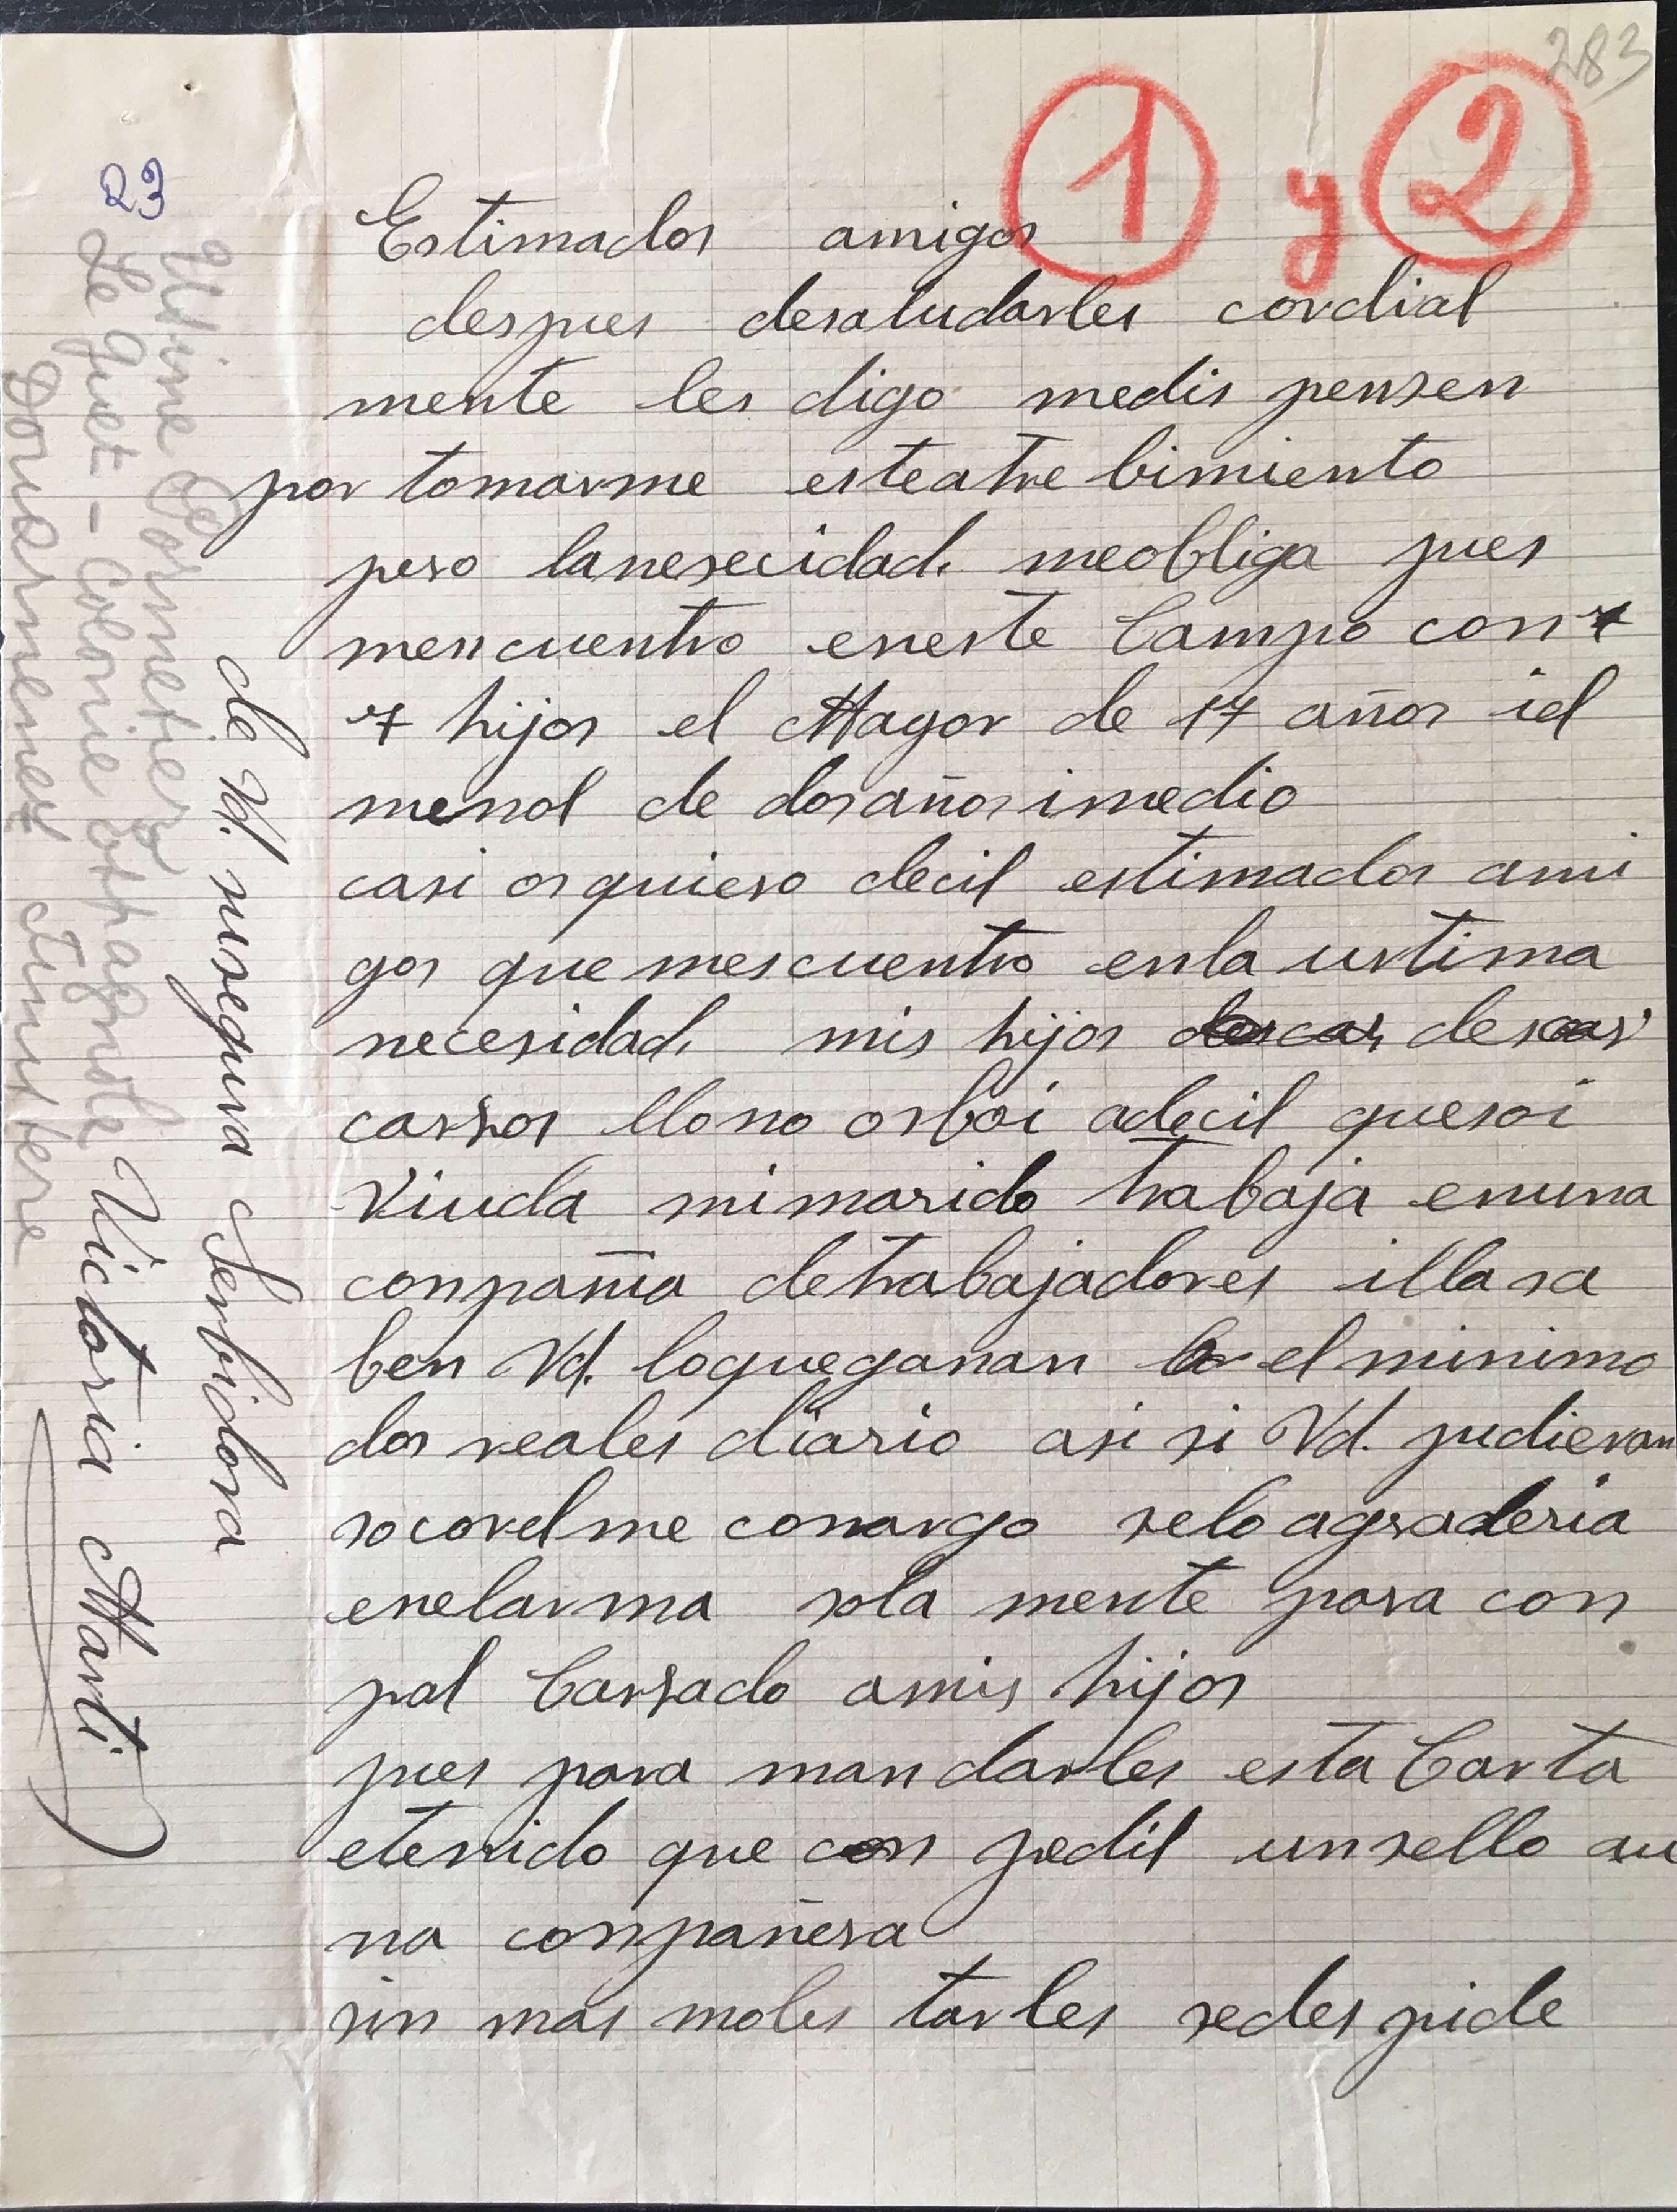 283
1 y 2
23
Estimados amigos
despues desaludarles cordial
mente les digo medis pensen
por tomarme esteatre bimiento
pero lanesecidad. meobliga pues
mencuentro eneste Campo con
7 hijos el Mayor de 17 años iel
menol de dosaños imedio
casi osquiero decil estimados ami
gos que mescuentro enla urtima
necesidad. mis hijos descas
carsos llo no osboi adecil quesoi
Viuda mimarido trabaja enuna
conpañia detrabajadores illa sa
ben Vd. loqueganan el minimo
dos reales diario asi si Vd. pudieran
socorelme conargo selo agraderia
enelarma sola mente para con
pal Carsado amis hijos
pues para mandarles esta Carta
etenido que con pedil unsello au
na conpañera
sin mas moles tarles sedes pide
de Vd. susegura Serbidora
Victoria Marti
Usine Cormetier
Le Guet - Colonie espagnole
Douarnenez Finistere